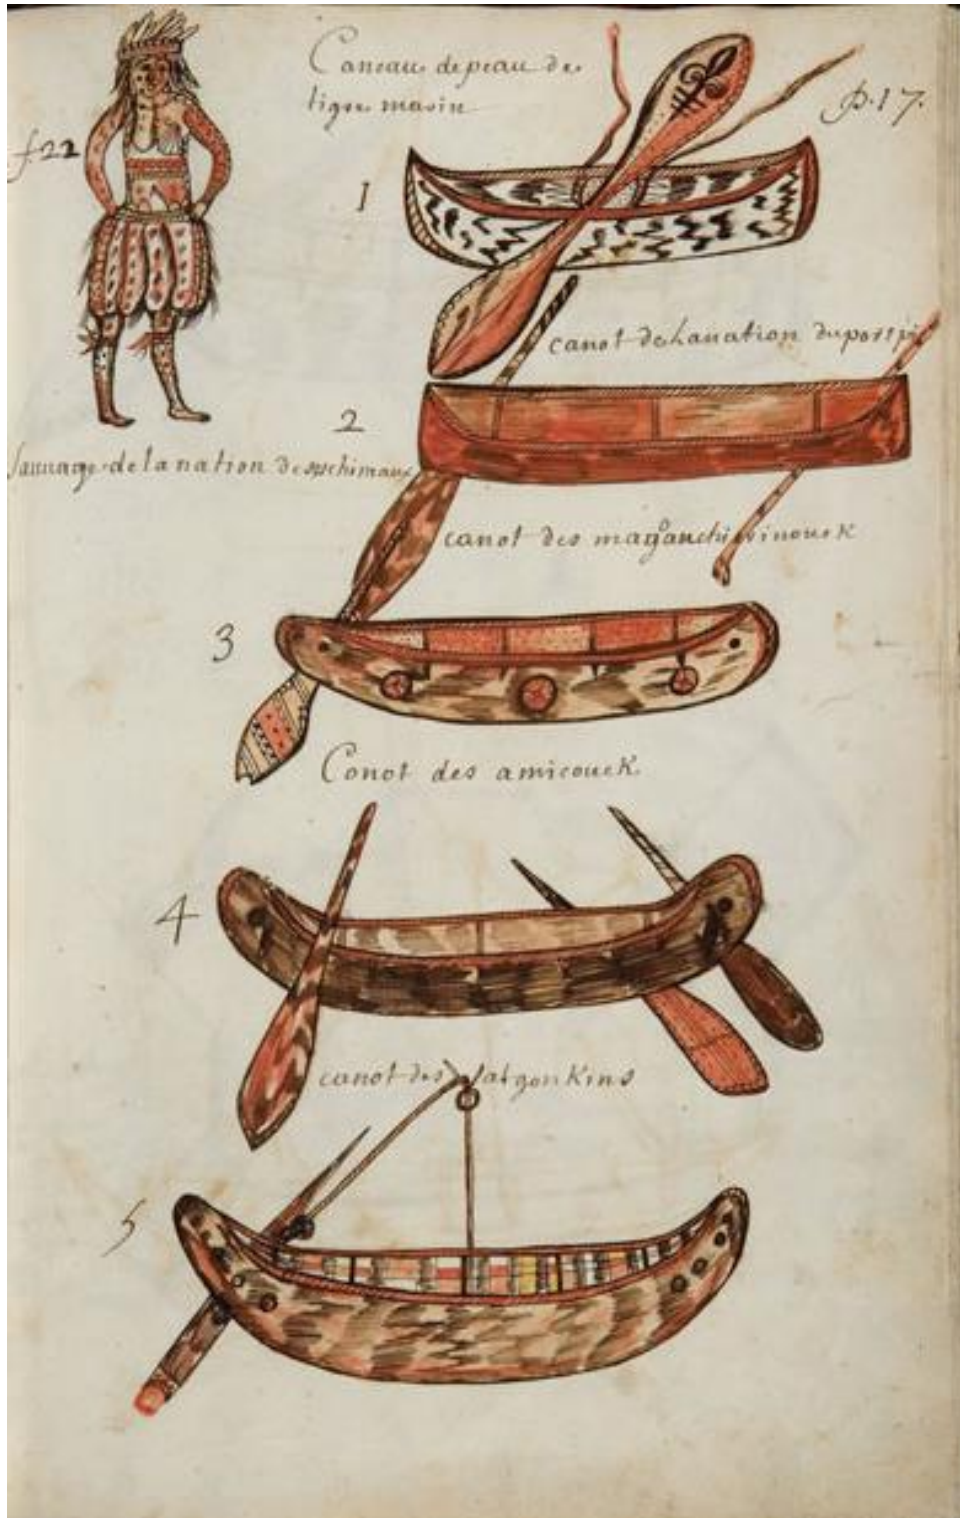 Caneau de peau de
tigre marin
P. 17.
f 22
1
canot de la nation du porc epi
2
Sauvage de la nation des eschimaux
canot des magouchirinouek
3
Conot des amicouek
4
canot des algonkins
5